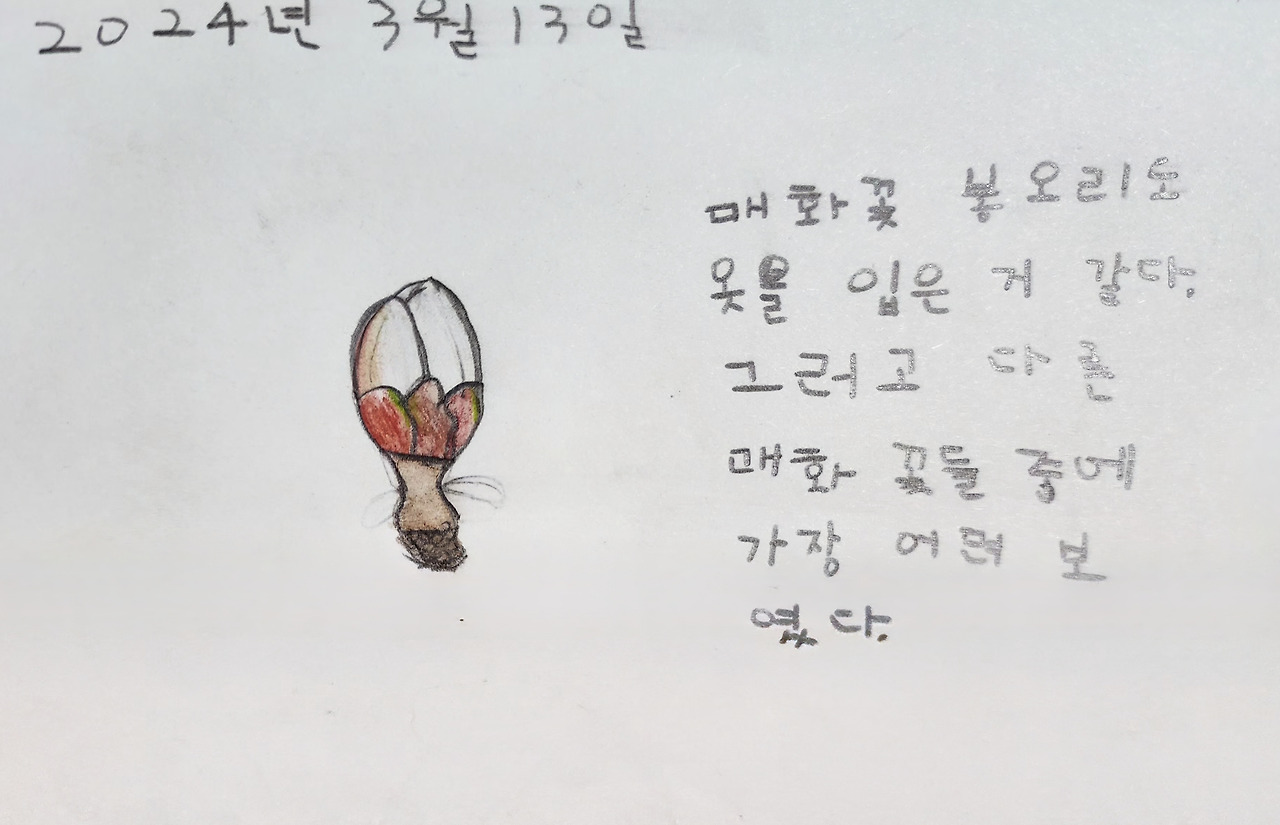 2024년 3월 13일
매화꽃 봉오리도
옷을 입은 거 같다.
그러고 다른
매화 꽃들 중에
가장 어려 보
였다.